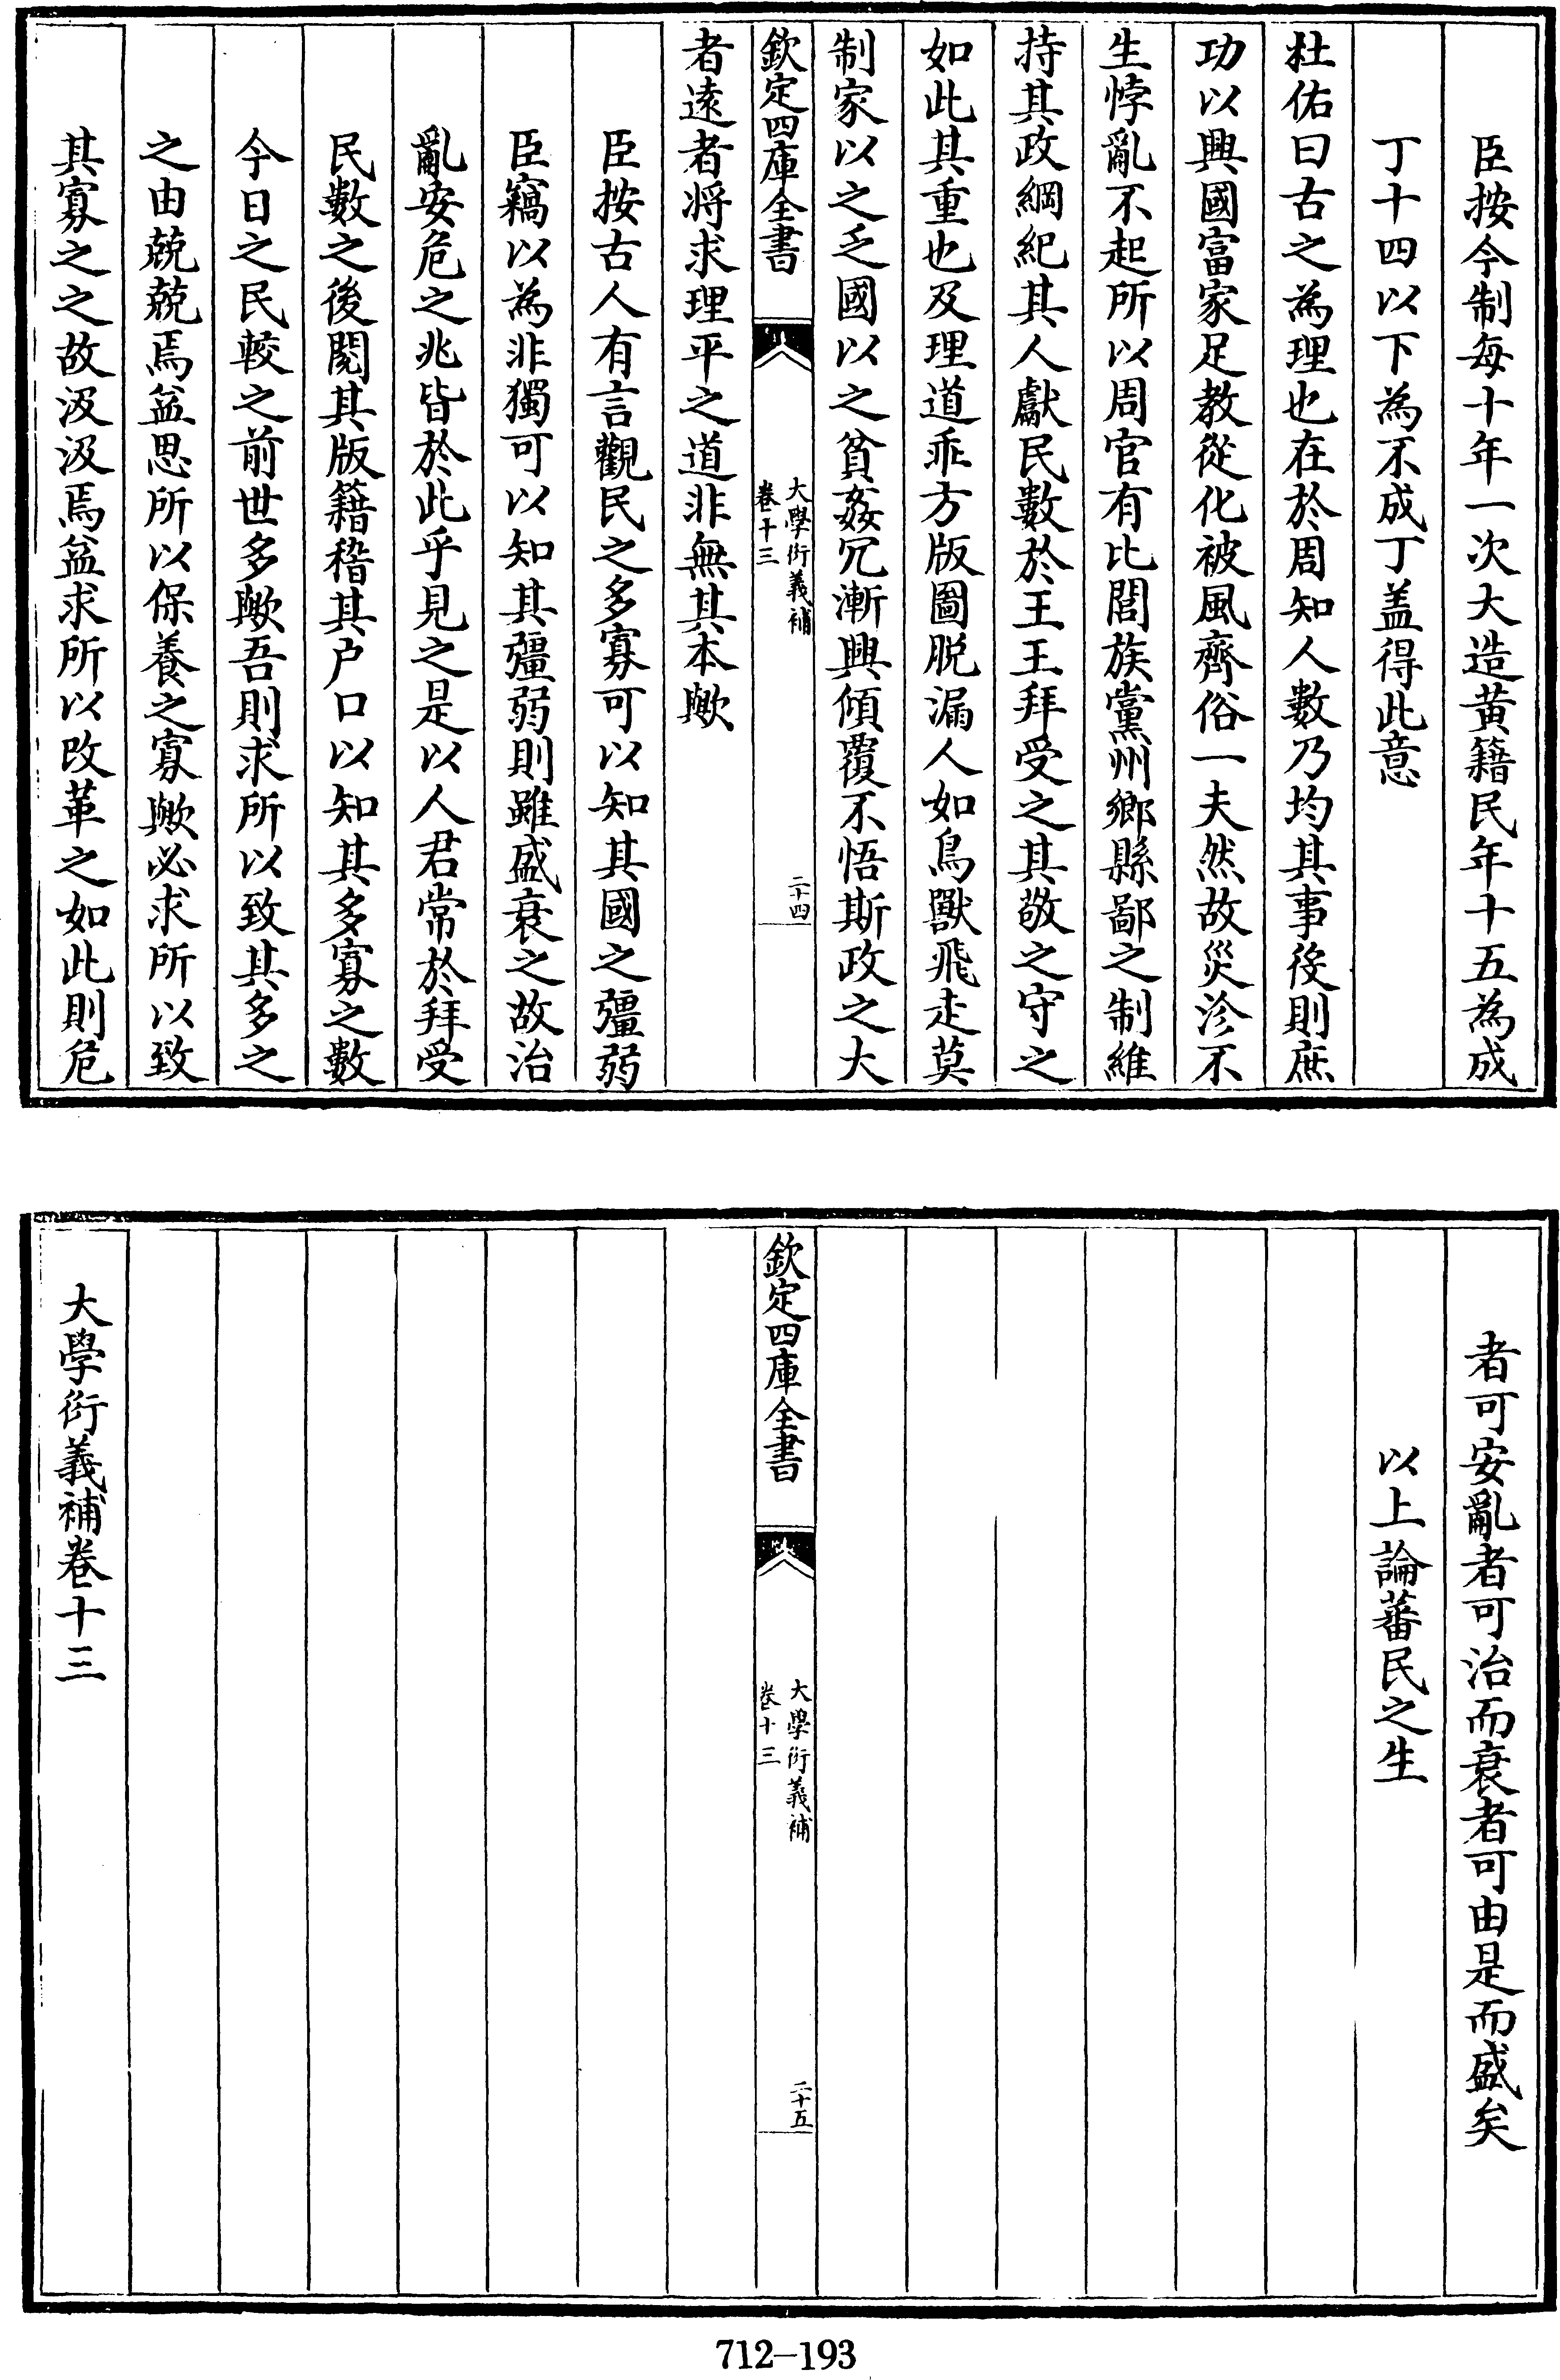 臣按今制每十年一次大造黄籍民年十五為成
丁十四以下為不成丁盖得此意
杜佑曰古之為理也在於周知人數乃均其事後則庶
功以興國富家足教從化被風齊俗一夫然故災沴不
生悖亂不起所以周官有比閭族黨州鄉縣鄙之制維
持其政綱紀其人獻民數於王王拜受之其敬之守之
如此其重也及理道乖方版圖脱漏人如鳥獸飛走莫
制家以之乏國以之貧姦冗漸興傾覆不悟斯政之大
欽定四庫全書
大學衍義補
卷十三
二十四
者逺者将求理平之道非無其本歟
臣按古人有言觀民之多寡可以知其國之彊弱
臣竊以為非獨可以知其彊弱則雖盛衰之故治
亂安危之兆皆於此乎見之是以人君常於拜受
民數之後閱其版籍稽其户口以知其多寡之數
今日之民較之前世多歟吾則求所以致其多之
之由兢兢焉益思所以保養之寡歟必求所以致
其寡之之故汲汲焉益求所以改革之如此則危
者可安亂者可治而衰者可由是而盛矣
以上論蕃民之生
欽定四庫全書
大學衍義補
卷十三
二十五
大學衍義補卷十三
712-193